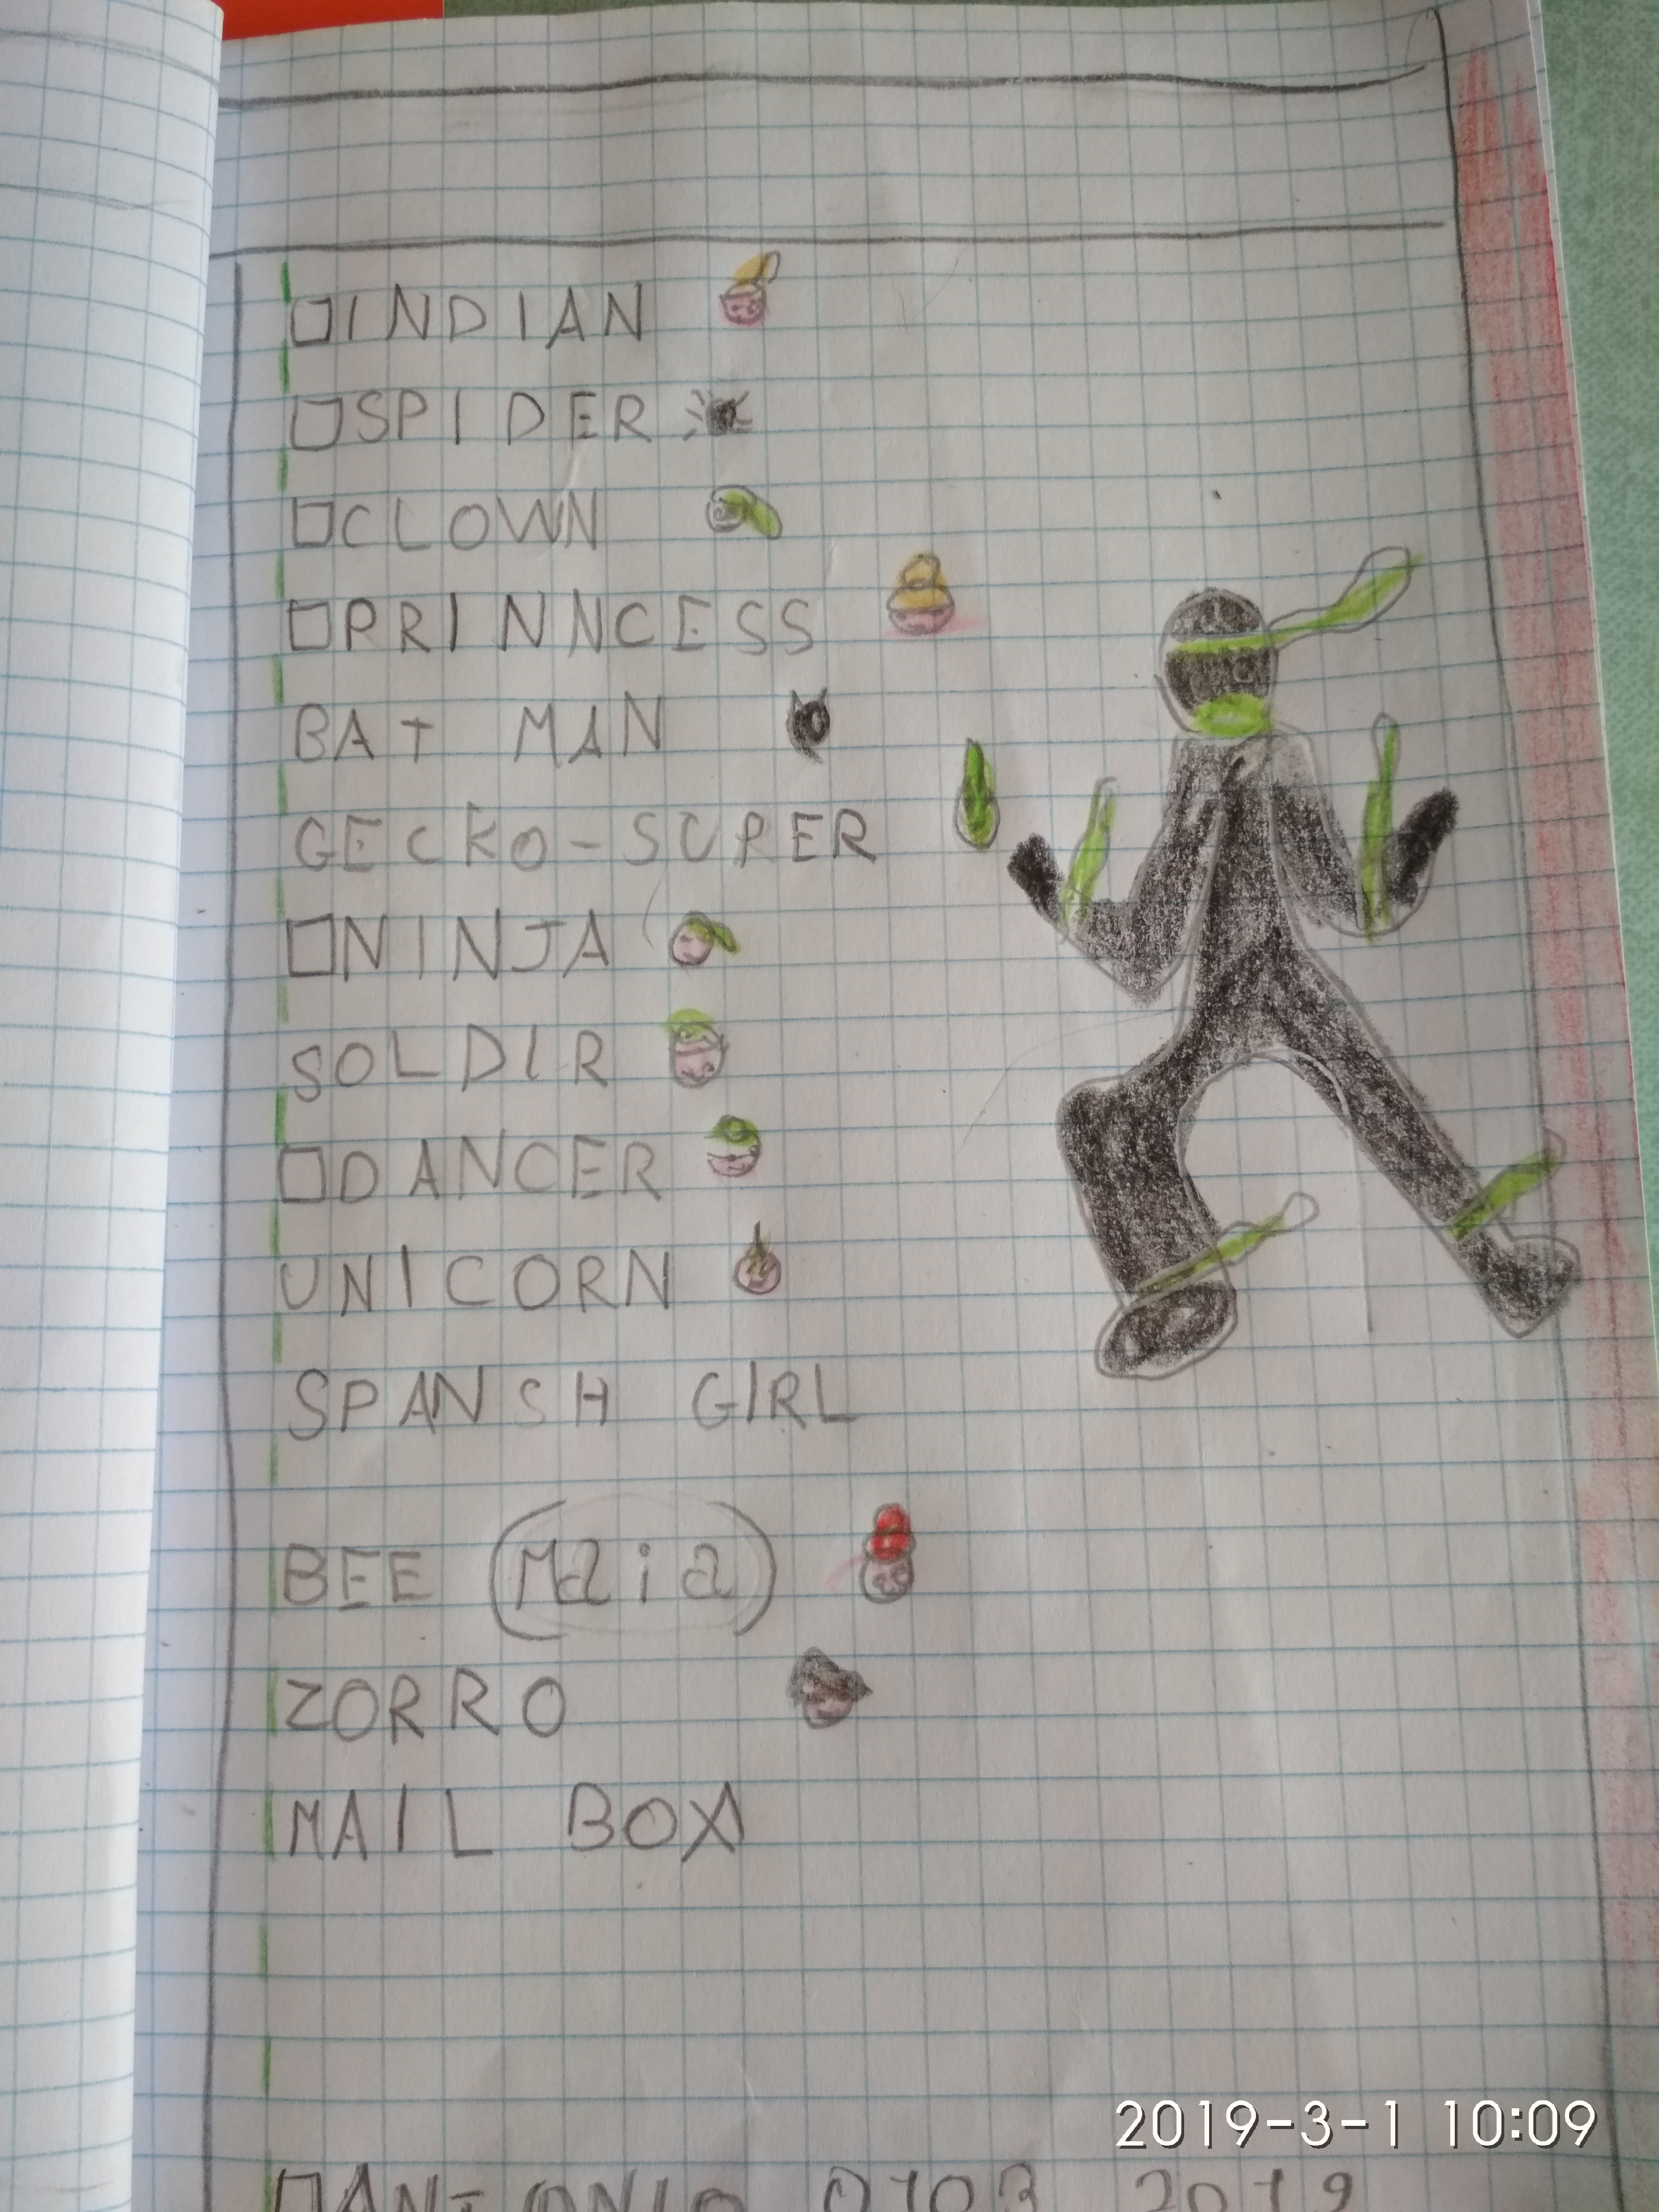 INDIAN
SPIDER
CLOWN
PRINNCESS
BAT MAN
GECKO-SUPER
NINJA
SOLDIR
DANCER
UNICORN
SPANSH GIRL
BEE (Maia)
ZORRO
MAIL BOX
2019-3-1 10:09
2019